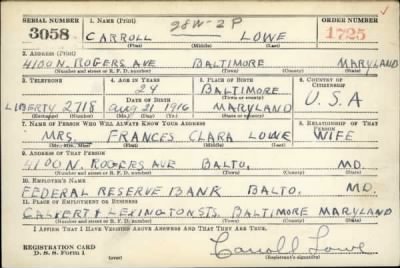 SERIAL NUMBER 1. NAME (Print) 28W-2P ORDER NUMBER
3058 CARROLL LOWE 1725
(First) (Middle) (Last)
2. ADDRESS (Print)
4100 N. ROGERS AVE BALTIMORE MARYLAND
(Number and street or R. F. D. number) (Town) (County) (State)
3. TELEPHONE 4. AGE IN YEARS 5. PLACE OF BIRTH 6. COUNTRY OF CITIZENSHIP
24 BALTIMORE
DATE OF BIRTH (Town or county)
LIBERTY 2718 Aug 21 1916 MARYLAND U.S.A
(Exchange) (Number) (Mo.) (Day) (Yr.) (State or country)
7. NAME OF PERSON WHO WILL ALWAYS KNOW YOUR ADDRESS 8. RELATIONSHIP OF THAT PERSON
MRS. FRANCES CLARA LOWE WIFE
(Mr., Mrs., Miss) (First) (Middle) (Last)
9. ADDRESS OF THAT PERSON
4100 N. ROGERS AVE BALTO. MD.
(Number and street or R. F. D. number) (Town) (County) (State)
10. EMPLOYER'S NAME
FEDERAL RESERVE BANK BALTO. MD.
11. PLACE OF EMPLOYMENT OR BUSINESS
CALVERT & LEXINGTON STS. BALTIMORE MARYLAND
(Number and street or R. F. D. number) (Town) (County) (State)
I AFFIRM THAT I HAVE VERIFIED ABOVE ANSWERS AND THAT THEY ARE TRUE.
REGISTRATION CARD
D. S. S. Form 1 (over) Carroll Lowe
(Registrant's signature)